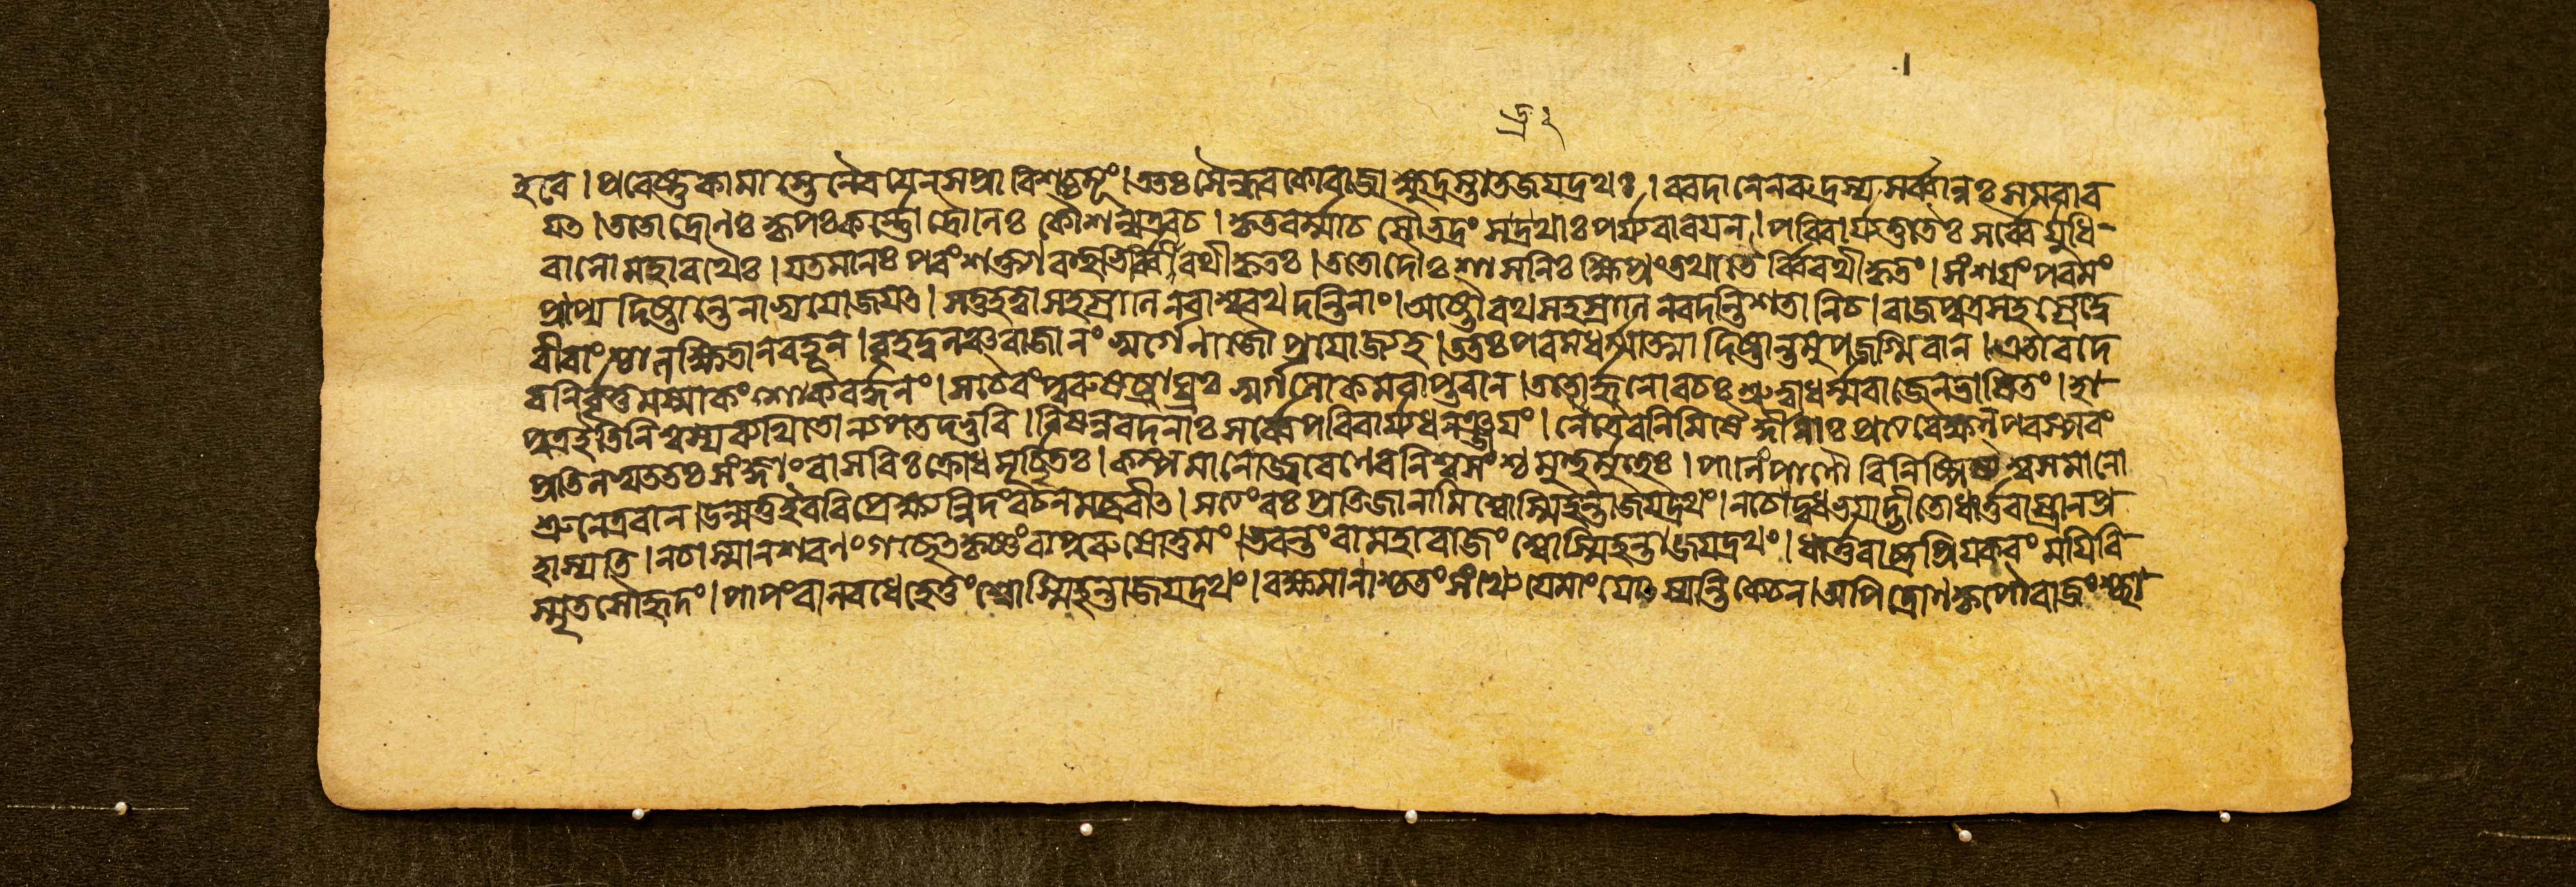 হবে। প্রবেষ্টুকামাস্তেনৈব যেন স প্রাবিশচ্চমূং। ততঃ সৈন্ধবকো রাজা ক্ষুদ্রস্তাত জয়দ্রথঃ। বরদানেন রুদ্রস্য সর্ব্বান্নঃ সমবারব
যত। ততো দ্রোণঃ কৃপঃ কর্ণো দ্রৌণিঃ কৌশল্য এবচ। কৃতবর্ম্মাচ সৌভদ্রং সদ্রথাঃ পর্য্যবারয়ন। পরিবার্য্যতুতৈঃ সর্ব্বৈর্যুধি
বালো মহারথৈঃ। যতমানঃ পরং শক্ত্যা বহুভির্ব্বিরথীকৃতঃ। ততো দৌঃশাসনিঃ ক্ষিপ্রং তথাতৈর্ব্বিরথীকৃতং। সংশয়ং পরমং
প্রাপ্য দিষ্টান্তেনাভ্যযোজয়ত। সতুহত্বা সহস্রাণি নরাশ্বরথদন্তিনাং। অষ্টৌ রথসহস্রাণি নবদন্তিশতানিচ। রাজপুত্রসহস্রেদ্বে
বীরাংশ্চালক্ষিতান বহূন। বৃহদ্বলঞ্চ রাজানং স্বর্গেণাজৌ প্রযোজ্যহ। ততঃ পরমধর্ম্মাত্মা দিষ্টান্তমুপজগ্মিবান। এতাবদে
বনির্বৃত্তমস্মাকং শোকবর্দ্ধনং। সচৈবং পুরুষব্যাঘ্রঃ স্বর্গলোকমবাপ্তবান। ততোর্জ্জুনো বচঃ শ্রুত্বা ধর্ম্মরাজেন ভাষিতং। হা
পুত্র ইতি নিশ্বস্য ব্যথিতো ন্যপতদ্ভুবি। বিষন্নবদনাঃ সর্ব্বে পরিবার্য্য ধনঞ্জয়ং। নেত্রৈরনিমিষৈর্দ্দীনাঃ প্রত্যবেক্ষন পরস্পরং
প্রতিলভ্য ততঃ সংজ্ঞাং বাসবিঃ ক্রোধমূর্চ্ছিতঃ। কম্পমানো জ্বরেণেব নিশ্বসংশ্চ মুহুর্মুহুঃ। পাণিং পাণৌ বিনিষ্পিষ্য শ্বসমানো
শ্রুনেত্রবান। উন্মত্তইব বিপ্রেক্ষন্নিদং বচনমব্রবীত। সত্যং বঃ প্রতিজানামি শ্বোস্মিহন্তা জয়দ্রথং। নচেদ্বধভয়াদ্ভীতো ধার্ত্তরাষ্ট্রান প্র
হাস্যতি। নচাস্মান শরণং গচ্ছেত কৃষ্ণং বা পুরুষোত্তমং। ভবন্তং বা মহারাজং শ্বোস্মিহন্তা জয়দ্রথং। ধার্ত্তরাষ্ট্রপ্রিয়করং ময়িবি
স্মৃতসৌহৃদং। পাপং বালবধে হেতুং শ্বোস্মিহন্তা জয়দ্রথং। রক্ষমানাশ্চ তং সংখ্যে যেমাং যোৎস্যন্তি কেচন। অপি দ্রোণকৃপৌ রাজং শ্ছা